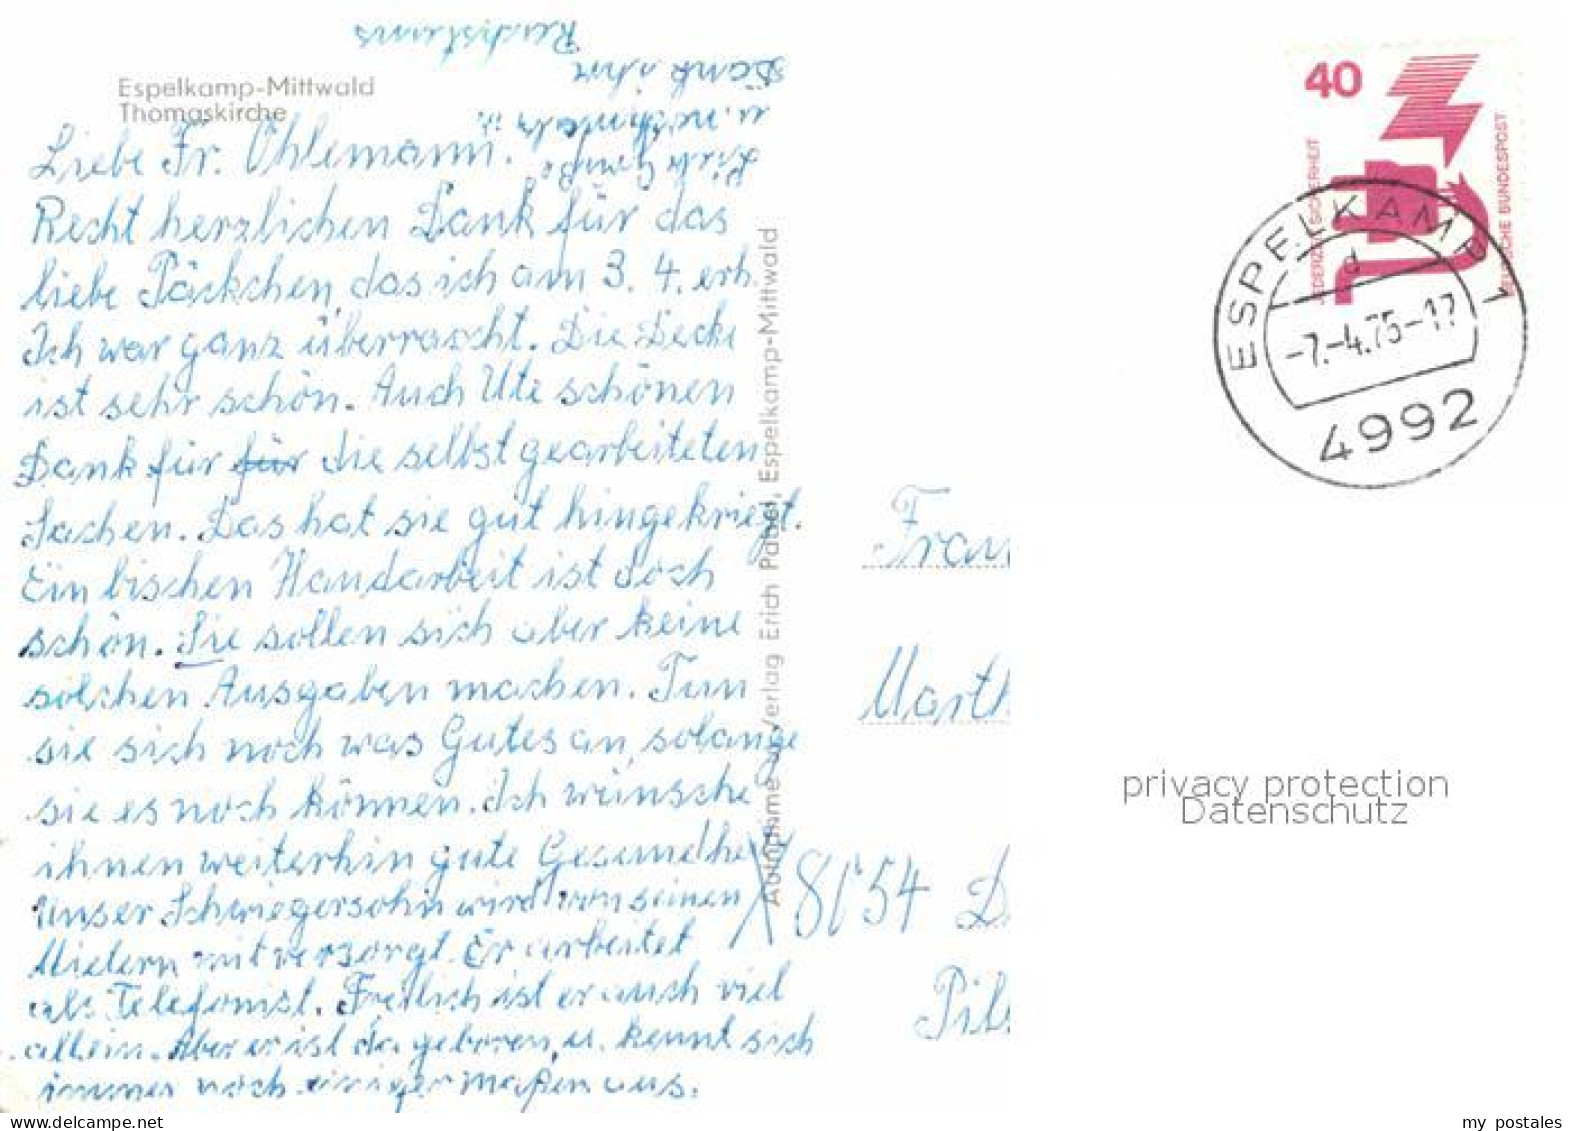 Espelkamp-Mittwald
Thomaskirche
Liebe Fr. Ohlemann.
Recht herzlichen Dank für das
liebe Päckchen, das ich am 3. 4. erh.
Ich war ganz überrascht. Die Decke
ist sehr schön. Auch Ute schönen
Dank für für die selbstgearbeiteten
Sachen. Das hat sie gut hingekriegt.
Ein bischen Handarbeit ist doch
schön. Sie sollen sich aber keine
solchen Ausgaben machen. Tun
sie sich noch was Gutes an, solange
sie es noch können. Ich wünsche
ihnen weiterhin gute Gesundhei
Unser Schwiegersohn wird von seinen
mit versorgt. Er arbeitet
als Telefonist. Freilich ist er auch viel
allein. Aber er ist da geboren, u. kennt sich
immer noch einigermaßen aus.
u. nochmals
Dank ihre
Aufnahme u. Verlag Erich Pabsel, Espelkamp-Mittwald
40
JEDERZEIT SICHERHEIT
DEUTSCHE BUNDESPOST
ESPELKAMP 1
d
-7.-4.75-17
4992
Frau
Marth
8054 D
Pils
privacy protection
Datenschutz
my postales